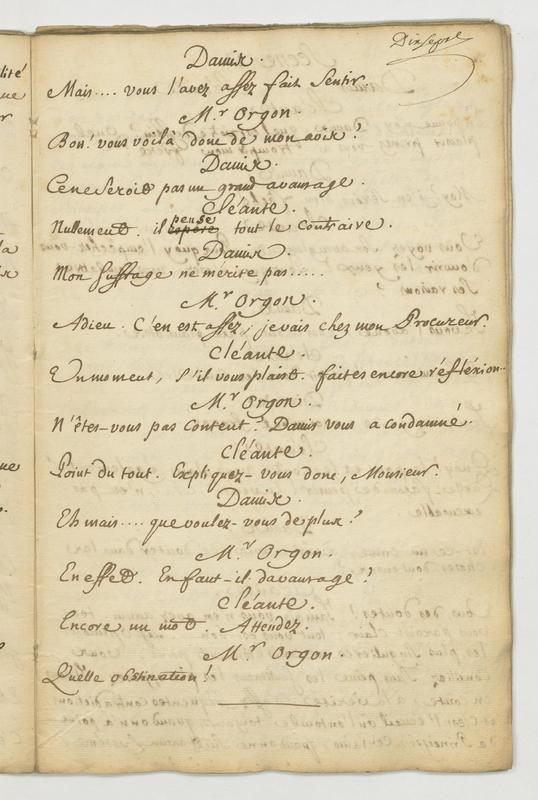 Damis.
Mais.... vous l'avez assez fait sentir.
M.r Orgon.
Bon! vous voilà donc de mon avis?
Damis.
Ce ne seroit pas un grand avantage.
Cléante.
Nullement. il espere pense tout le contraire.
Damis.
Mon suffrage ne mérite pas.....
M.r Orgon.
Adieu. C'en est assez, je vais chez mon Procureur.
Cléante.
Un moment, s'il vous plaist. faites encore réfléxion..
M.r Orgon.
N'êtes-vous pas content? Damis vous a condamné.
Cléante.
Point du tout. Expliquez-vous donc, Monsieur.
Damis.
Eh mais.... que voulez-vous de plus?
M.r Orgon.
En effet. En faut-il davantage?
Cléante.
Encore un mot. Attendez.
M.r Orgon.
Quelle obstination!